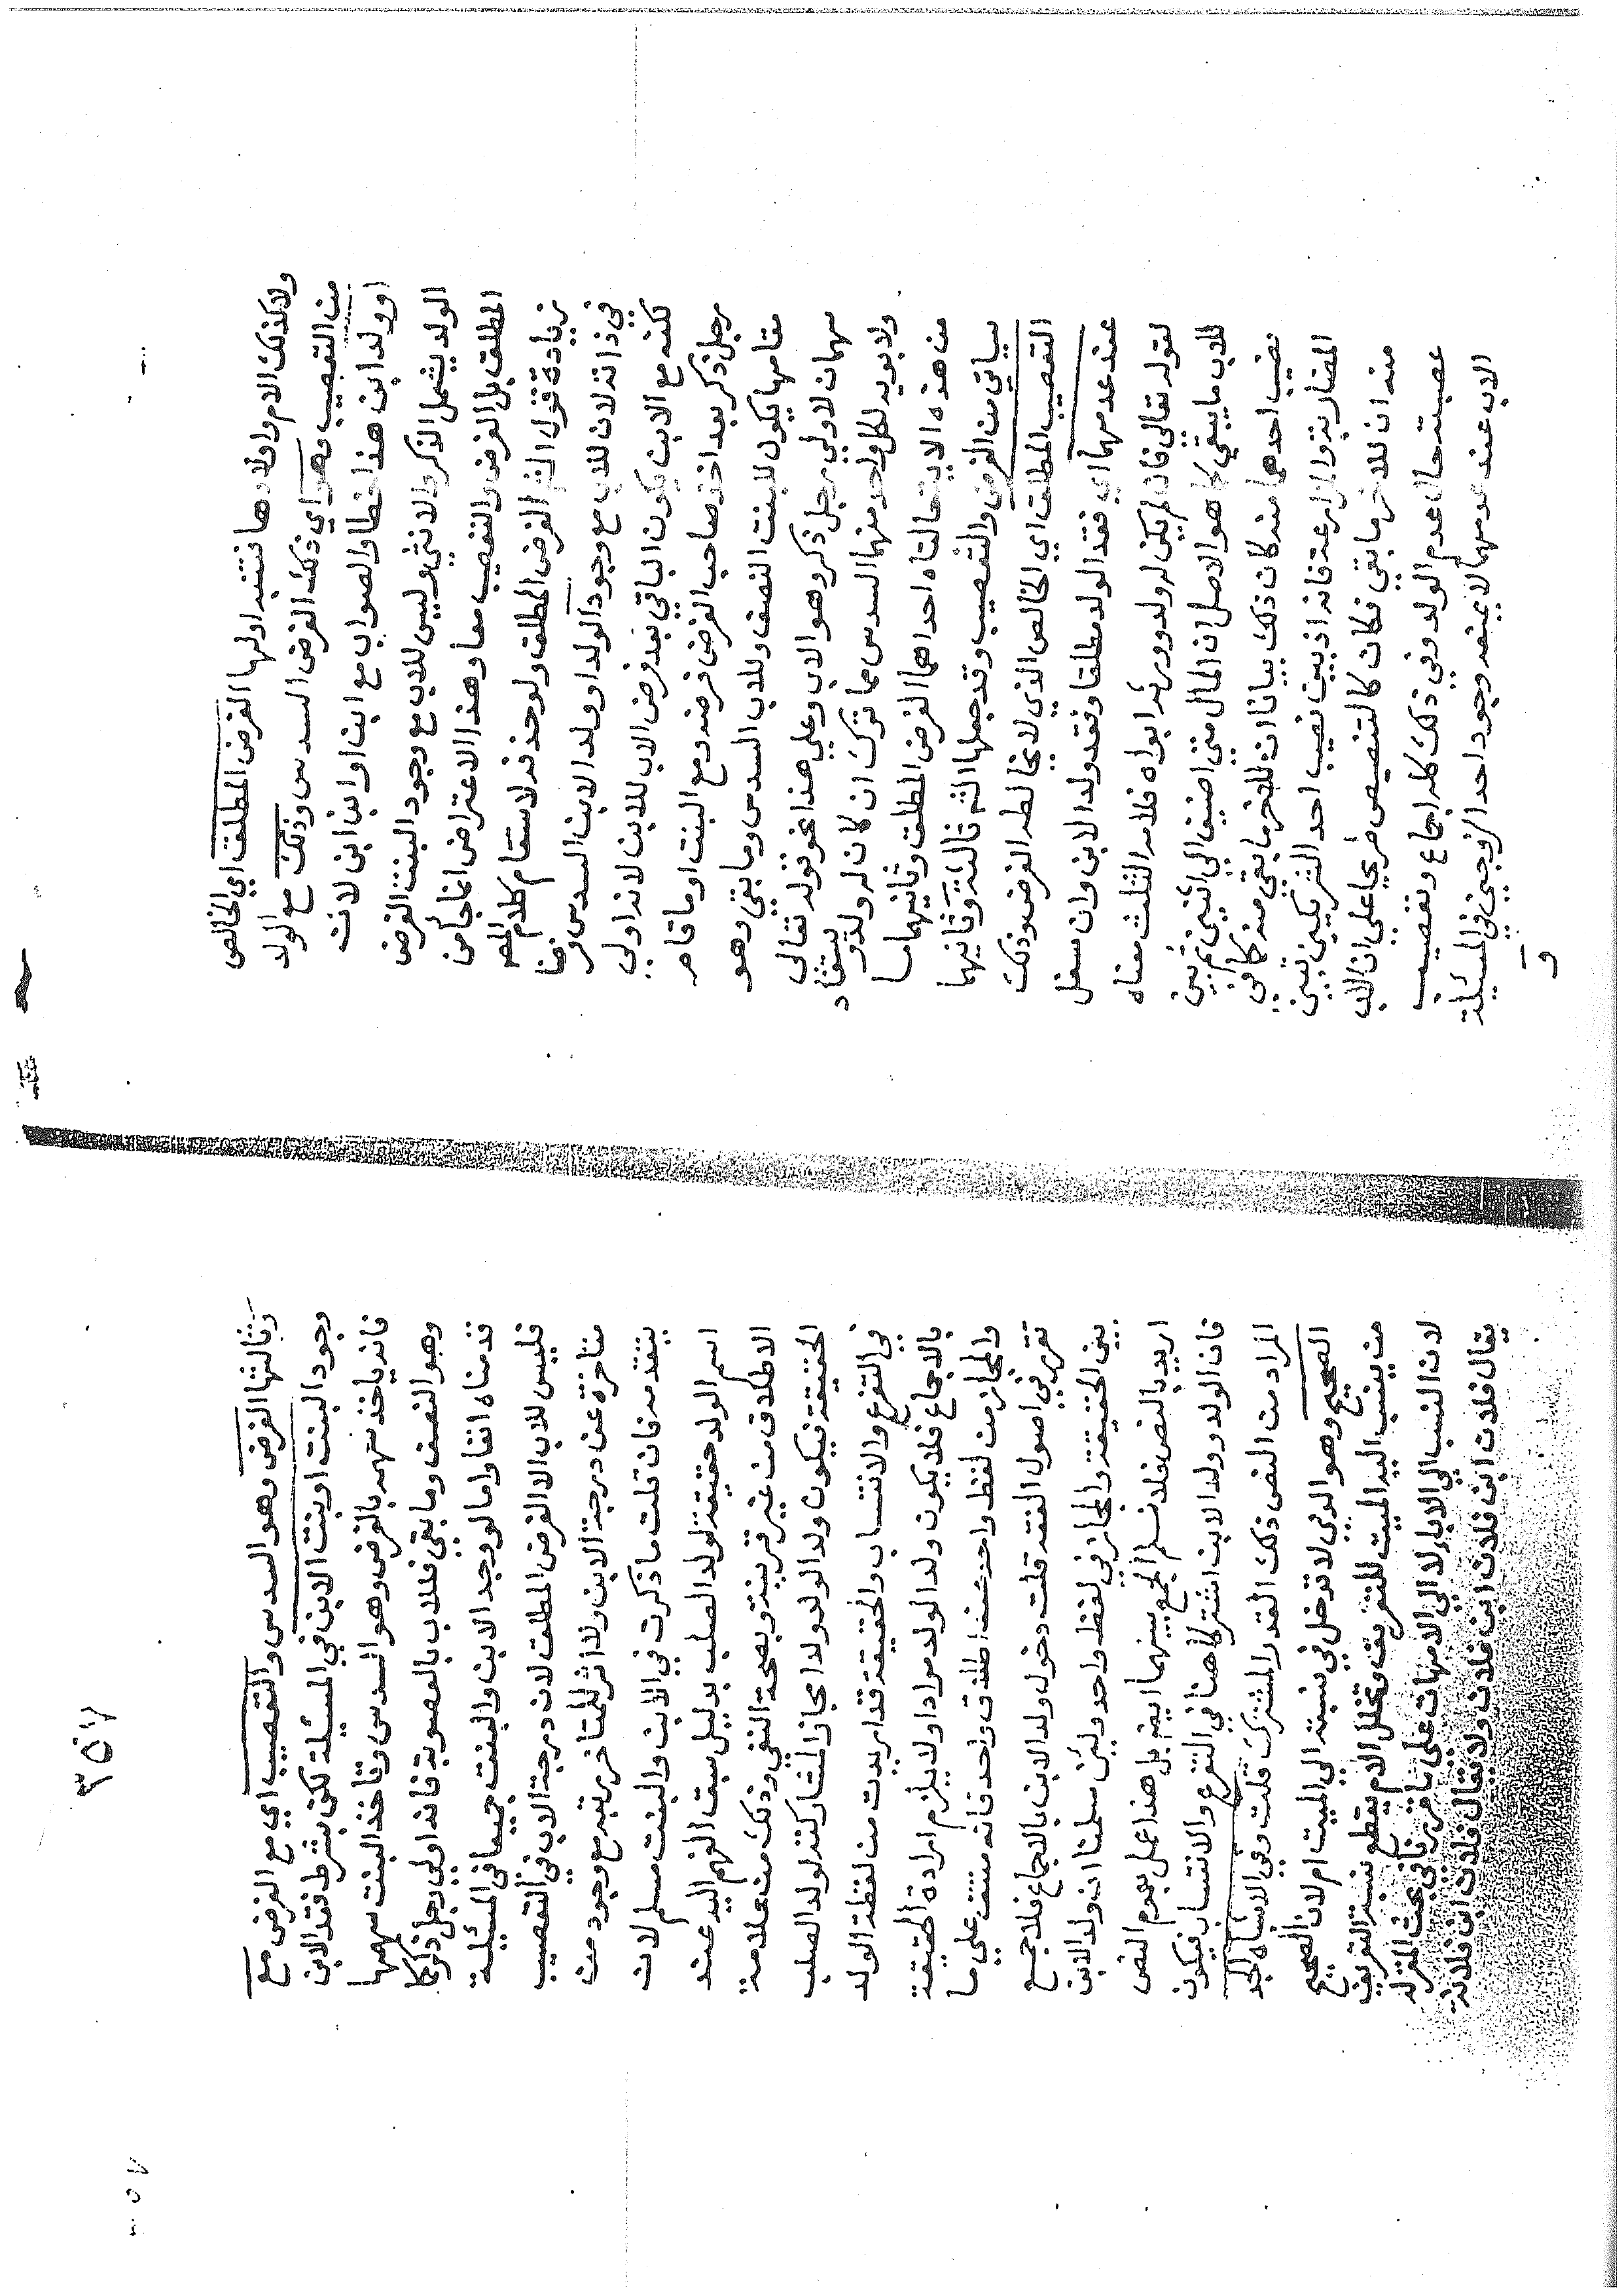 ولا كذلك الام واولادها فتنبه اولها الفرض المطلق اي الخالص
من التعصيب وهو اي ذلك الفرض السدس وذلك مع الولد
او ولد ابن هذا خطا والصواب مع ابن او ابن ابن لان
الولد يشمل الذكر والانثي وليس للاب مع وجود البنت الفرض
المطلق بل الفرض والتعصيب معا وهذا الاعتراض انما جا من
زيادة قول الشم الفرض المطلق ولو حذفه لاستقام كلام المصـ
في ذاته لان للاب مع وجود الولد او ولد الابن السدس فرضا
لكنه مع الابن يكون الباقي بعد فرض الاب للابن لانه اولي
رجل ذكر بعد اخذ صاحب الفرض فرضه ومع البنت او ما قام
مقامها يكون للبنت النصف وللاب السدس وما بقي وهو
سهمان لاولي رجل ذكر وهو الاب وعلي هذا نحو قوله تعالي
ولابويه لكل واحد منهما السدس مما ترك ان كان له ولد ويستفاد
من هذه الاية حالتاه احداهما الفرض المطلق وثانيهما ما
سياتي من الفرض والتعصيب وقد جعلها الشم ثالثة وثانيهما
التعصيب المطلق اي الخالص الذي لا يخالطه الفرض وذلك
عند عدمهما اي فقد الولد مطلقا وفقد ولد الابن وان سفل
لقوله تعالي فان لم يكن له ولد وورثه ابواه فلامه الثلث معناه
للاب ما يبقي كما هو الاصل ان المال متي اضيف الي اثنين ثم بين
نصيب احدهما منه كان ذلك بيانا ان للاخر ما بقي منه كما في
المضاربة والمزارعة فانه اذ بين نصيب احد الشريكين تبين
منه ان للاخر ما بقي فكان كالتنصيص صريحا علي ان الاب
عصبة حال عدم الولد وفي ذلك كله اجماع وتعصيب
الاب عند عدمهما لا يمنعه وجود احد الزوجين في المسئلة
و
٣٥٧
وثالثها الفرض وهو السدس والتعصيب اي مع الفرض مع
وجود البنت او بنت الابن في المسيلة لكن بشرط فقد الابن
فانه ياخذ سهمه بالفرض وهو السدس وتاخذ البنت سهمها
وهو النصف وما بقي فللاب بالعصوبة فانه اولي رجل ذكر كما
قدمناه انفا واما لو وجد الابن والبنت جميعا في المسيلة
فليس للاب الا الفرض المطلق لان درجة الاب في التعصيب
متاخرة عن درجة الابن ولا اثر للمتاخر رتبة مع وجود من
يتقدمه فان قلت ما ذكرت في الابن والبنت مسلم لان
اسم الولد حقيقة لولد الصلب بدليل سبق الفهم اليه عند
الاطلاق من غير قرينة وبصحة النفي وذلك من علامة
الحقيقة فيكون ولد الولد ولدا مجازا لمشاركته لولد الصلب
في التفرع والانتساب والحقيقة قد اريدت من لفظة الولد
بالاجماع فلا يكون ولد الولد مرادا ولا يلزم ارادة الحقيقة
والمجاز من لفظ واحد عند اطلاق واحد فانه منتف علي ما
تقرر في اصول الفقه قلت دخول ولد الابن بالاجماع فلا جمع
بين الحقيقة والمجاز في لفظ واحد ولين سلمنا ان ولد الابن
اريد بالنص فلا نسلم الجمع بينهما ايضـ بل هذا عمل بعموم النص
فان الولد وولد الابن اشتركا هنا في التفرع والانتساب فيكون
المراد من النص ذلك القدر المشترك قلت وفي الاشباه الجد
الصحيح وهو الذي لا تدخل في نسبته الي الميت ام لان الصحيح
من ينسب اليه الميت للتعريف وتخلل الام يقطع نسبة التعريف
لان النسب الي الاباء لا الي الامهات علي ما قررنا في بحث المقر له
يقال فلان ابن فلان ابن فلان ولا يقال فلان ابن فلانة